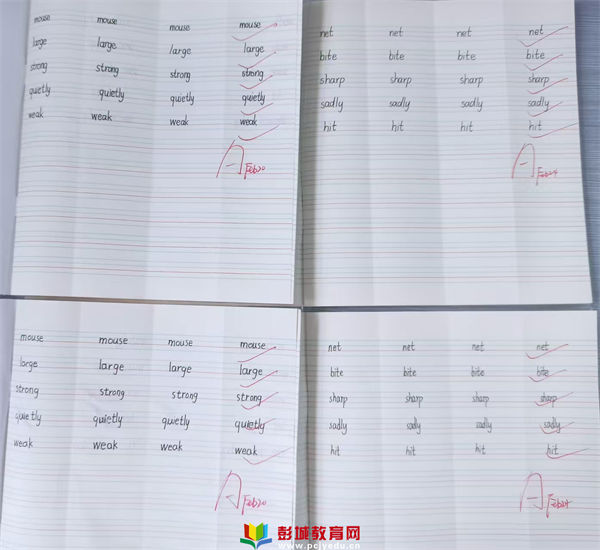 mouse mouse mouse mouse
large large large large
strong strong strong strong
quietly quietly quietly quietly
weak weak weak weak
A Feb20
net net net net
bite bite bite bite
sharp sharp sharp sharp
sadly sadly sadly sadly
hit hit hit hit
A Feb24
mouse mouse mouse mouse
large large large large
strong strong strong strong
quietly quietly quietly quietly
weak weak weak weak
A Feb20
net net net net
bite bite bite bite
sharp sharp sharp sharp
sadly sadly sadly sadly
hit hit hit hit
A Feb24
彭城教育网
www.pcjyedu.cn